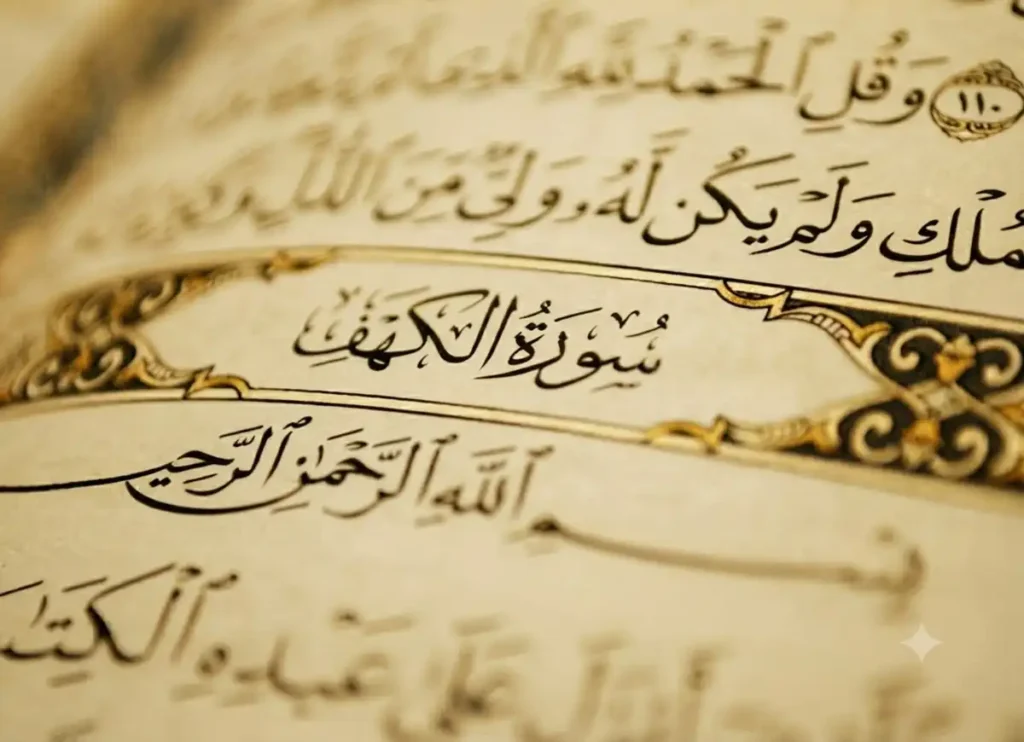 ١١٠ وَقُلِ ٱلْحَمْدُ لِلَّهِ ٱلَّذِى
ٱلْمُلْكِ وَلَمْ يَكُن لَّهُۥ وَلِىٌّ مِّنَ ٱلذُّلِّ
سُورَةُ الكَهْفِ
بِسْمِ ٱللَّهِ ٱلرَّحْمَٰنِ ٱلرَّحِي
أَنزَلَ عَلَىٰ عَبْدِهِ ٱلْكِتَٰبَ